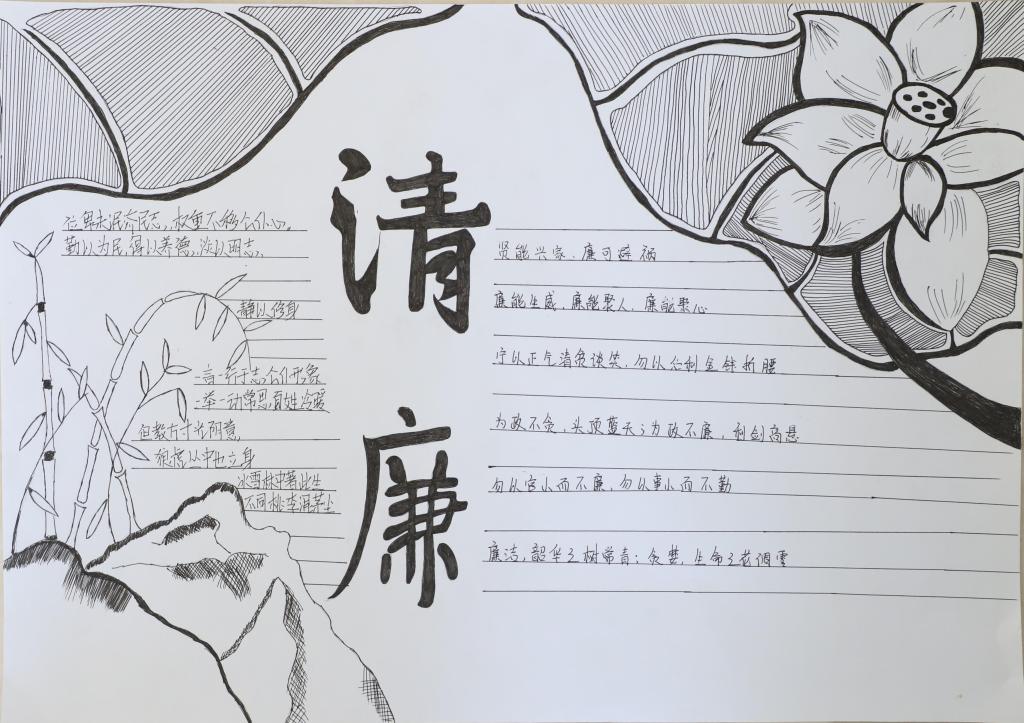 清
廉
位卑未泯济民志，权重不移公仆心。
勤以为民,俭以养德,淡以明志,
静以修身
一言一行于志公仆形象
一举一动常思百姓冷暖
但教方寸无
狼虎丛中也立身
冰雪林中著此身
不同桃李混芳尘
贤能兴家，廉可避祸
廉能生威，廉能聚人，廉能聚心
宁以正气清贫谈笑，勿以公利金钱折腰
为政不贪，头顶蓝天；为政不廉，利剑高悬
勿以官小而不廉，勿以事小而不勤
廉洁，韶华之树常青；贪婪，生命之花凋零